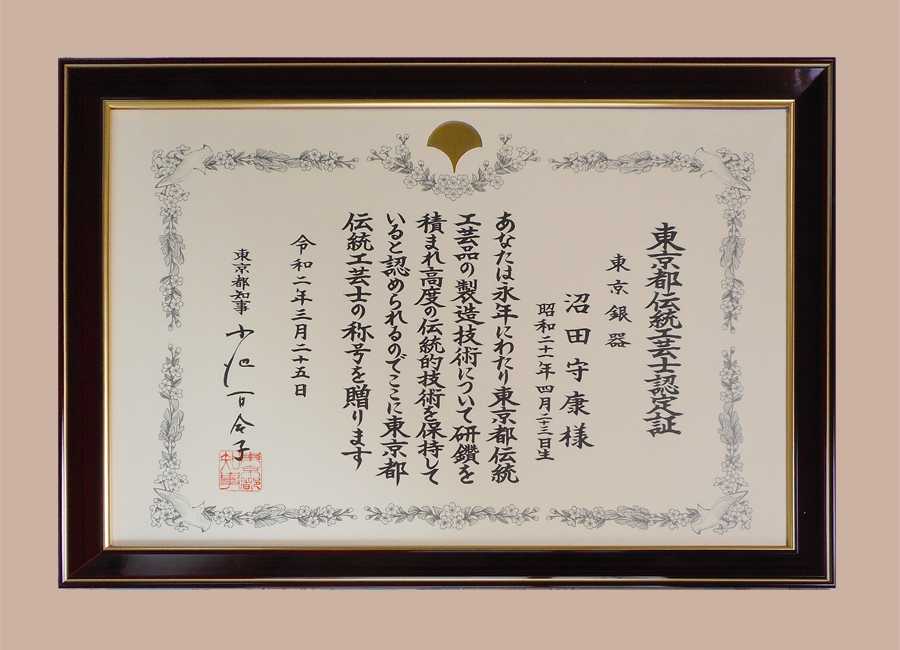 東京都伝統工芸士認定証
東京銀器
沼田守康様
昭和二十一年四月二十三日生
あなたは永年にわたり東京都伝統
工芸品の製造技術について研鑽を
積まれ高度の伝統的技術を保持して
いると認められるのでここに東京都
伝統工芸士の称号を贈ります
令和二年三月二十五日
東京都知事 小池百合子
東京都知事